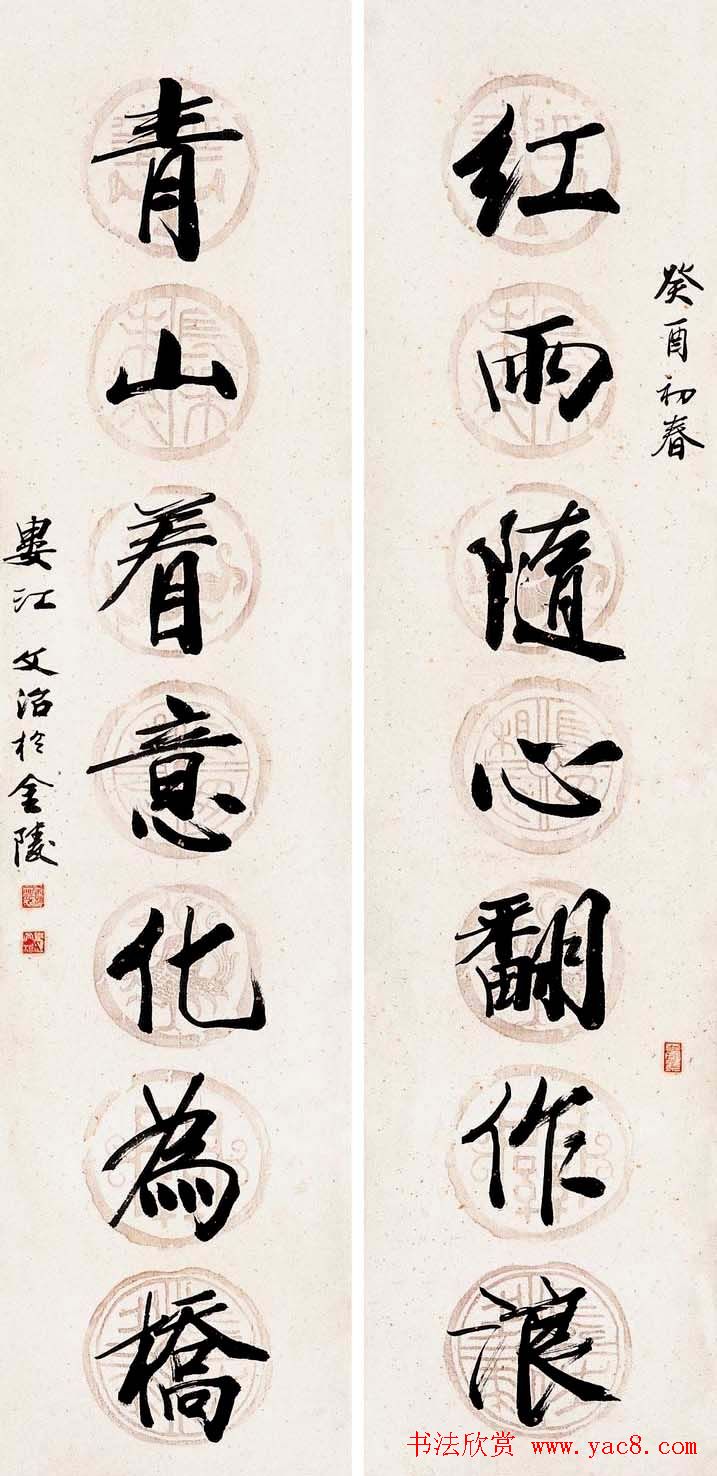 红雨隨心翻作浪
癸酉初春
青山着意化為橋
婁江文治於金陵
书法欣赏 www.yac8.com